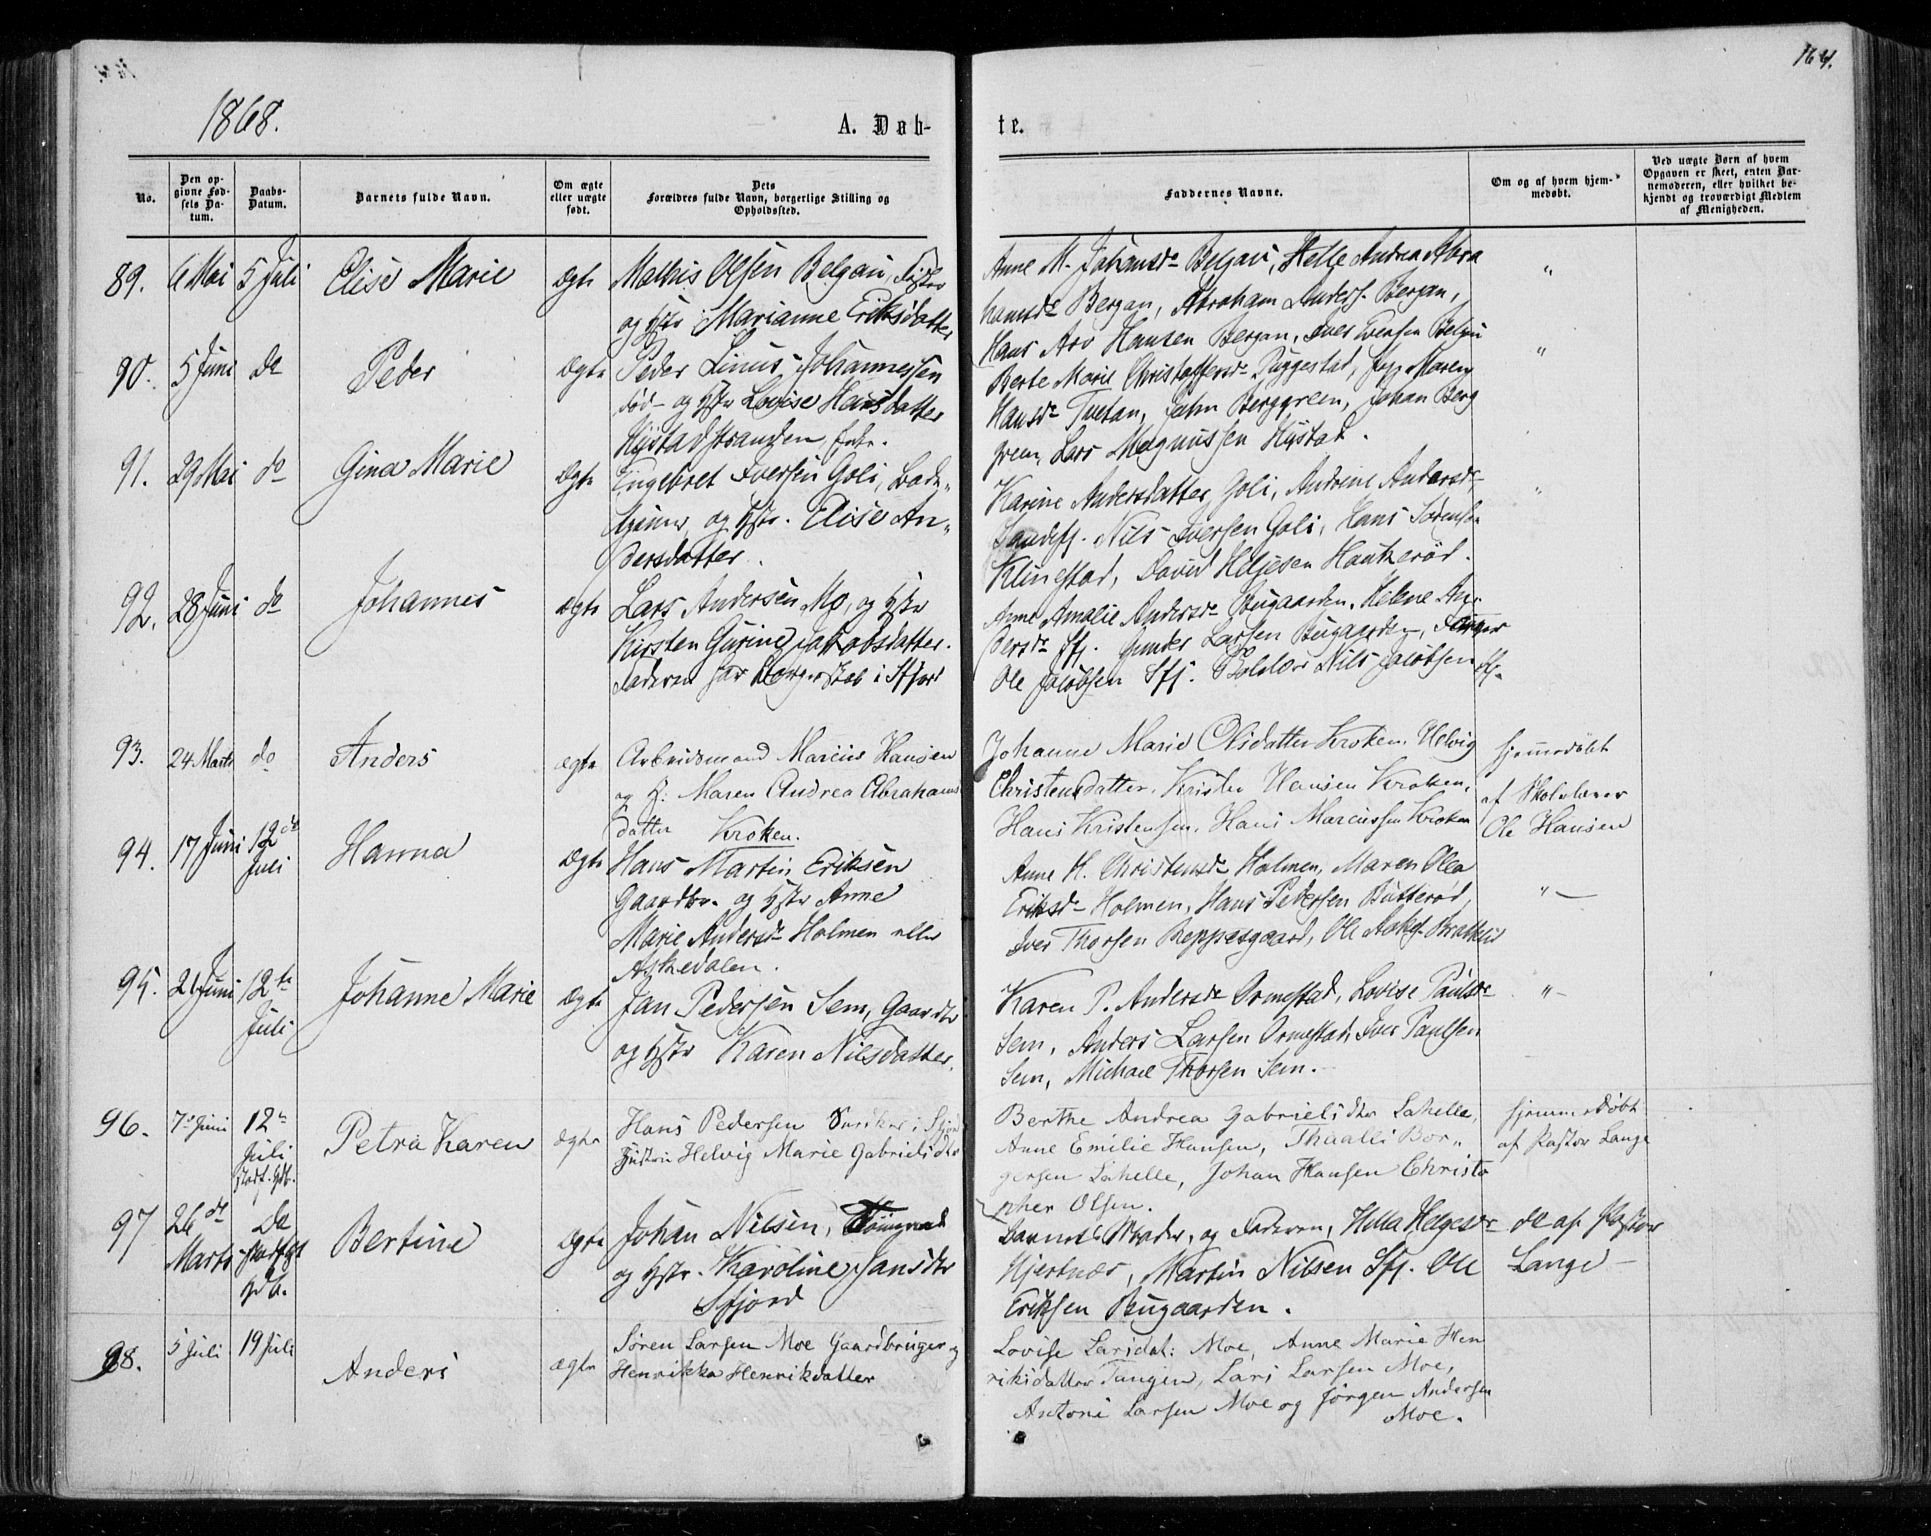 164.
1868.
A. Døb-
te.
No.
Den op-
givne Fød-
sels Da-
tum.
Daabs-
Datum.
Barnets fulde Navn.
Om ægte
eller uægte
født.
Dets
Forældres fulde Navn, borgerlige Stilling og
Opholdssted.
Faddernes Navne.
Om og af hvem hjem-
medøbt.
Ved uægte Børn af hvem
Opgaven er skeet, enten Bar-
nemoderen, eller hvilket be-
kjendt og troværdigt Medlem
af Menigheden.
89. 6 Mai 5 Juli Elise Marie ægte Mathis Olsen Belgau, Fisker
og Hstr Marianne Eriksdatter
Anne M. Johansdr Belgau, Helle Andrea Abra
hamsdr Bergan, Abraham Anders. Bergan,
Hans Arv Hansen Bergan, Iver Iversen Belgau
"
90. 5 Juni do Peder ægte Peder Linus Johannesen
og Hstr Lovise Hansdatter
Hystadstranden
Berte Marie Christoffersdr Puggestad, Maren
Hansdr Tvetan, John Berggreen, Johan Berg
green, Lars Magnussen Hystad.
"
91. 29 Mai do Gina Marie ægte Engebret Iversen Goli,
og Hstr. Elise An-
dersdatter.
Karine Andersdatter Goli, Andrine Andersdr
Sandefj. Nils Iversen Goli, Hans Sørensen
Klinestad, David Helgesen Haukerød.
"
92. 28 Juni do Johannes ægte Lars Andersen Mo, og Hstr
Kirsten Gurine Jakobsdatter.
Faderen har Borgerskab i Sfjord
Anne Amalie Andersdr Bugaarden, Helene An-
dersdr Sfj. Gunder Larsen Bugaarden,
Ole Jakobsen Sfj. Nils Jakobsen Sfj.
93. 24 Marts do Anders ægte Arbeidsmand Marcus Hansen
og H: Maren Andrea Abrahams
datter Kroken.
Johanne Marie Olsdatter Kroken, Helvig
Christensdatter, Krister Hansen Kroken,
Hans Kristensen, Hans Marcussen Kroken
hjemmedøbt
af Skolelærer
Ole Hansen
94. 17 Juni 12de
Juli Hanna ægte Hans Martin Eriksen
Gaardbr. og Hstr Anne
Marie Andersdr Holmen eller
Askedalen.
Anne H. Christensdr Holmen, Maren Olea
Eriksdr Holmen, Hans Pedersen Butterød,
Iver Thorsen Reppesgaard, Ole
" —
95. 21 Juni 12te
Juli Johanne Marie ægte Jan Pedersen Sem, Gaardbr
og Hstr Karen Nilsdatter.
Karen P. Andersdr Ormestad, Lovise Paulsdr
Sem, Anders Larsen Ormestad, Iver Paulsen
Sem, Michael Thorsen Sem.
" —
96. 7de Juni 12te
Juli
stadf. Hdb. Petra Karen ægte Hans Pedersen i Sfjord
Hustru Helvig Marie Gabrielsdtr
Berthe Andrea Gabrielsdtr Lahelle,
Anne Emilie Hansen, Thoalli Bor-
gersen Lahelle, Johan Hansen Christo
pher Olsen.
hjemmedøbt
af Pastor Lange
97 26de
Marts Do
stadfgt
Hdb. Bertine ægte Johan Nilsen, Tømmermand
og Hstr. Karoline Jansdtr
Sfjord
Barnets Moder, og Faderen, Helga Helgesdr
Hjertnæs, Martin Nilsen Sfj. Ole
Eriksen Bugaarden.
do af Pastor
Lange —
98. 5 Juli 19 Juli Anders ægte Søren Larsen Moe Gaardbruger og
Henrikka Henrikdatter
Lovise Larsdat: Moe, Anne Marie Hen
riksdatter Tangen, Lars Larsen Moe,
Antoni Larsen Moe og Jørgen Andersen
Moe.